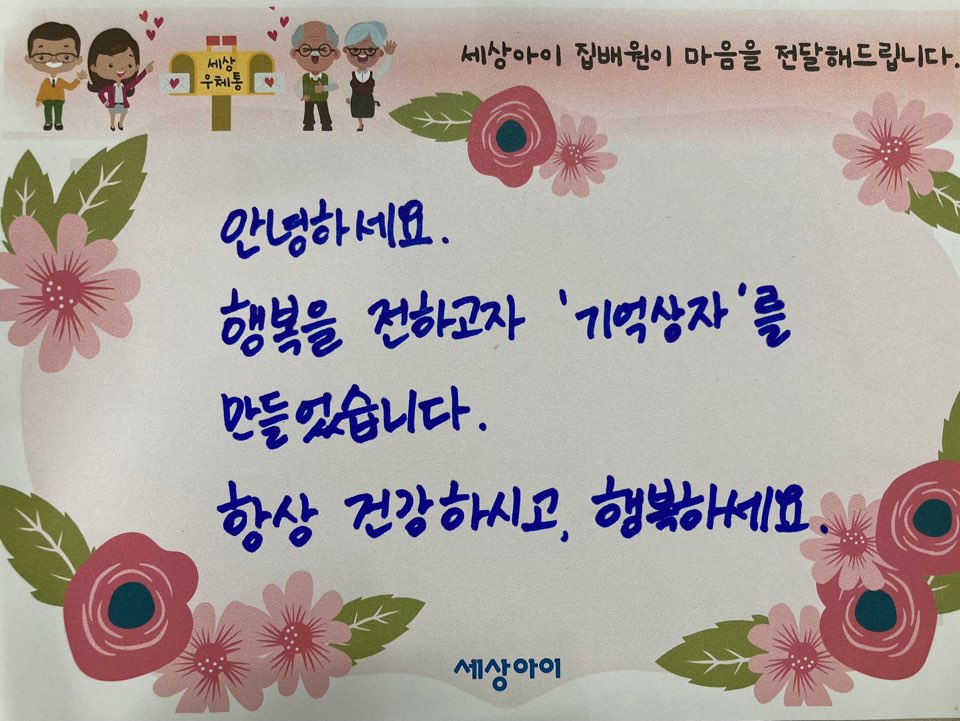 세상아이 집배원이 마음을 전달해드립니다.
세상
우체통
안녕하세요.
행복을 전하고자 '기억상자'를
만들었습니다.
항상 건강하시고, 행복하세요.
세상아이